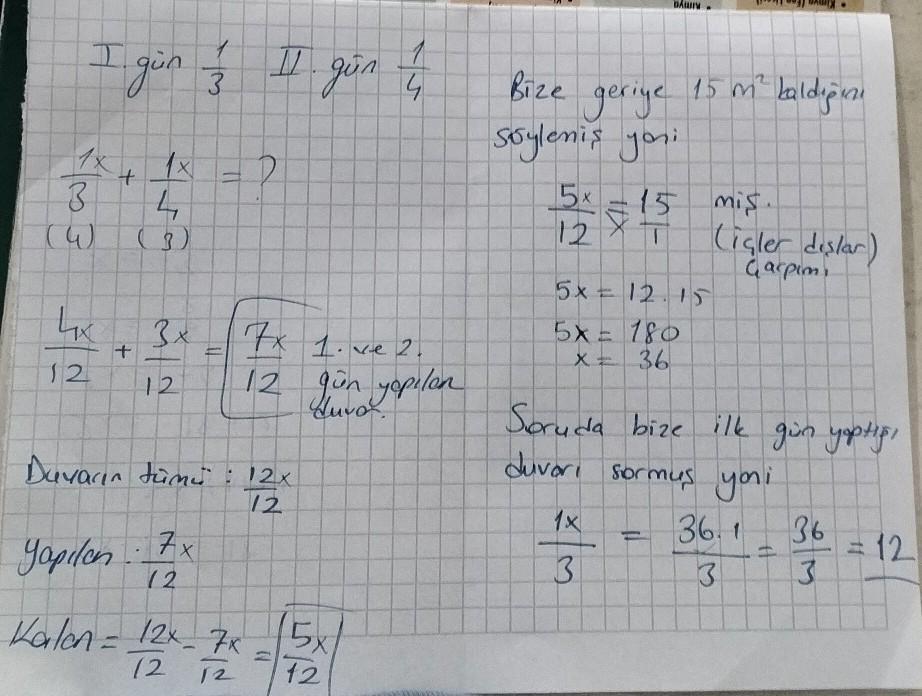 I. gün 1/3 II. gün 1/4
1x/3 + 1x/4 = ?
(4) (3)
4x/12 + 3x/12 = 7x/12 1. ve 2.
gün yapılan
duvar.
Duvarın tümü : 12x/12
Yapılan : 7x/12
Kalan = 12x/12 - 7x/12 = 5x/12
Bize geriye 15 m² kaldığını
söylemiş yani
5x/12 = 15/1 miş.
(içler dışlar)
çarpımı
5x = 12.15
5x = 180
x = 36
Soruda bize ilk gün yaptığı
duvarı sormuş yani
1x/3 = 36.1/3 = 36/3 = 12